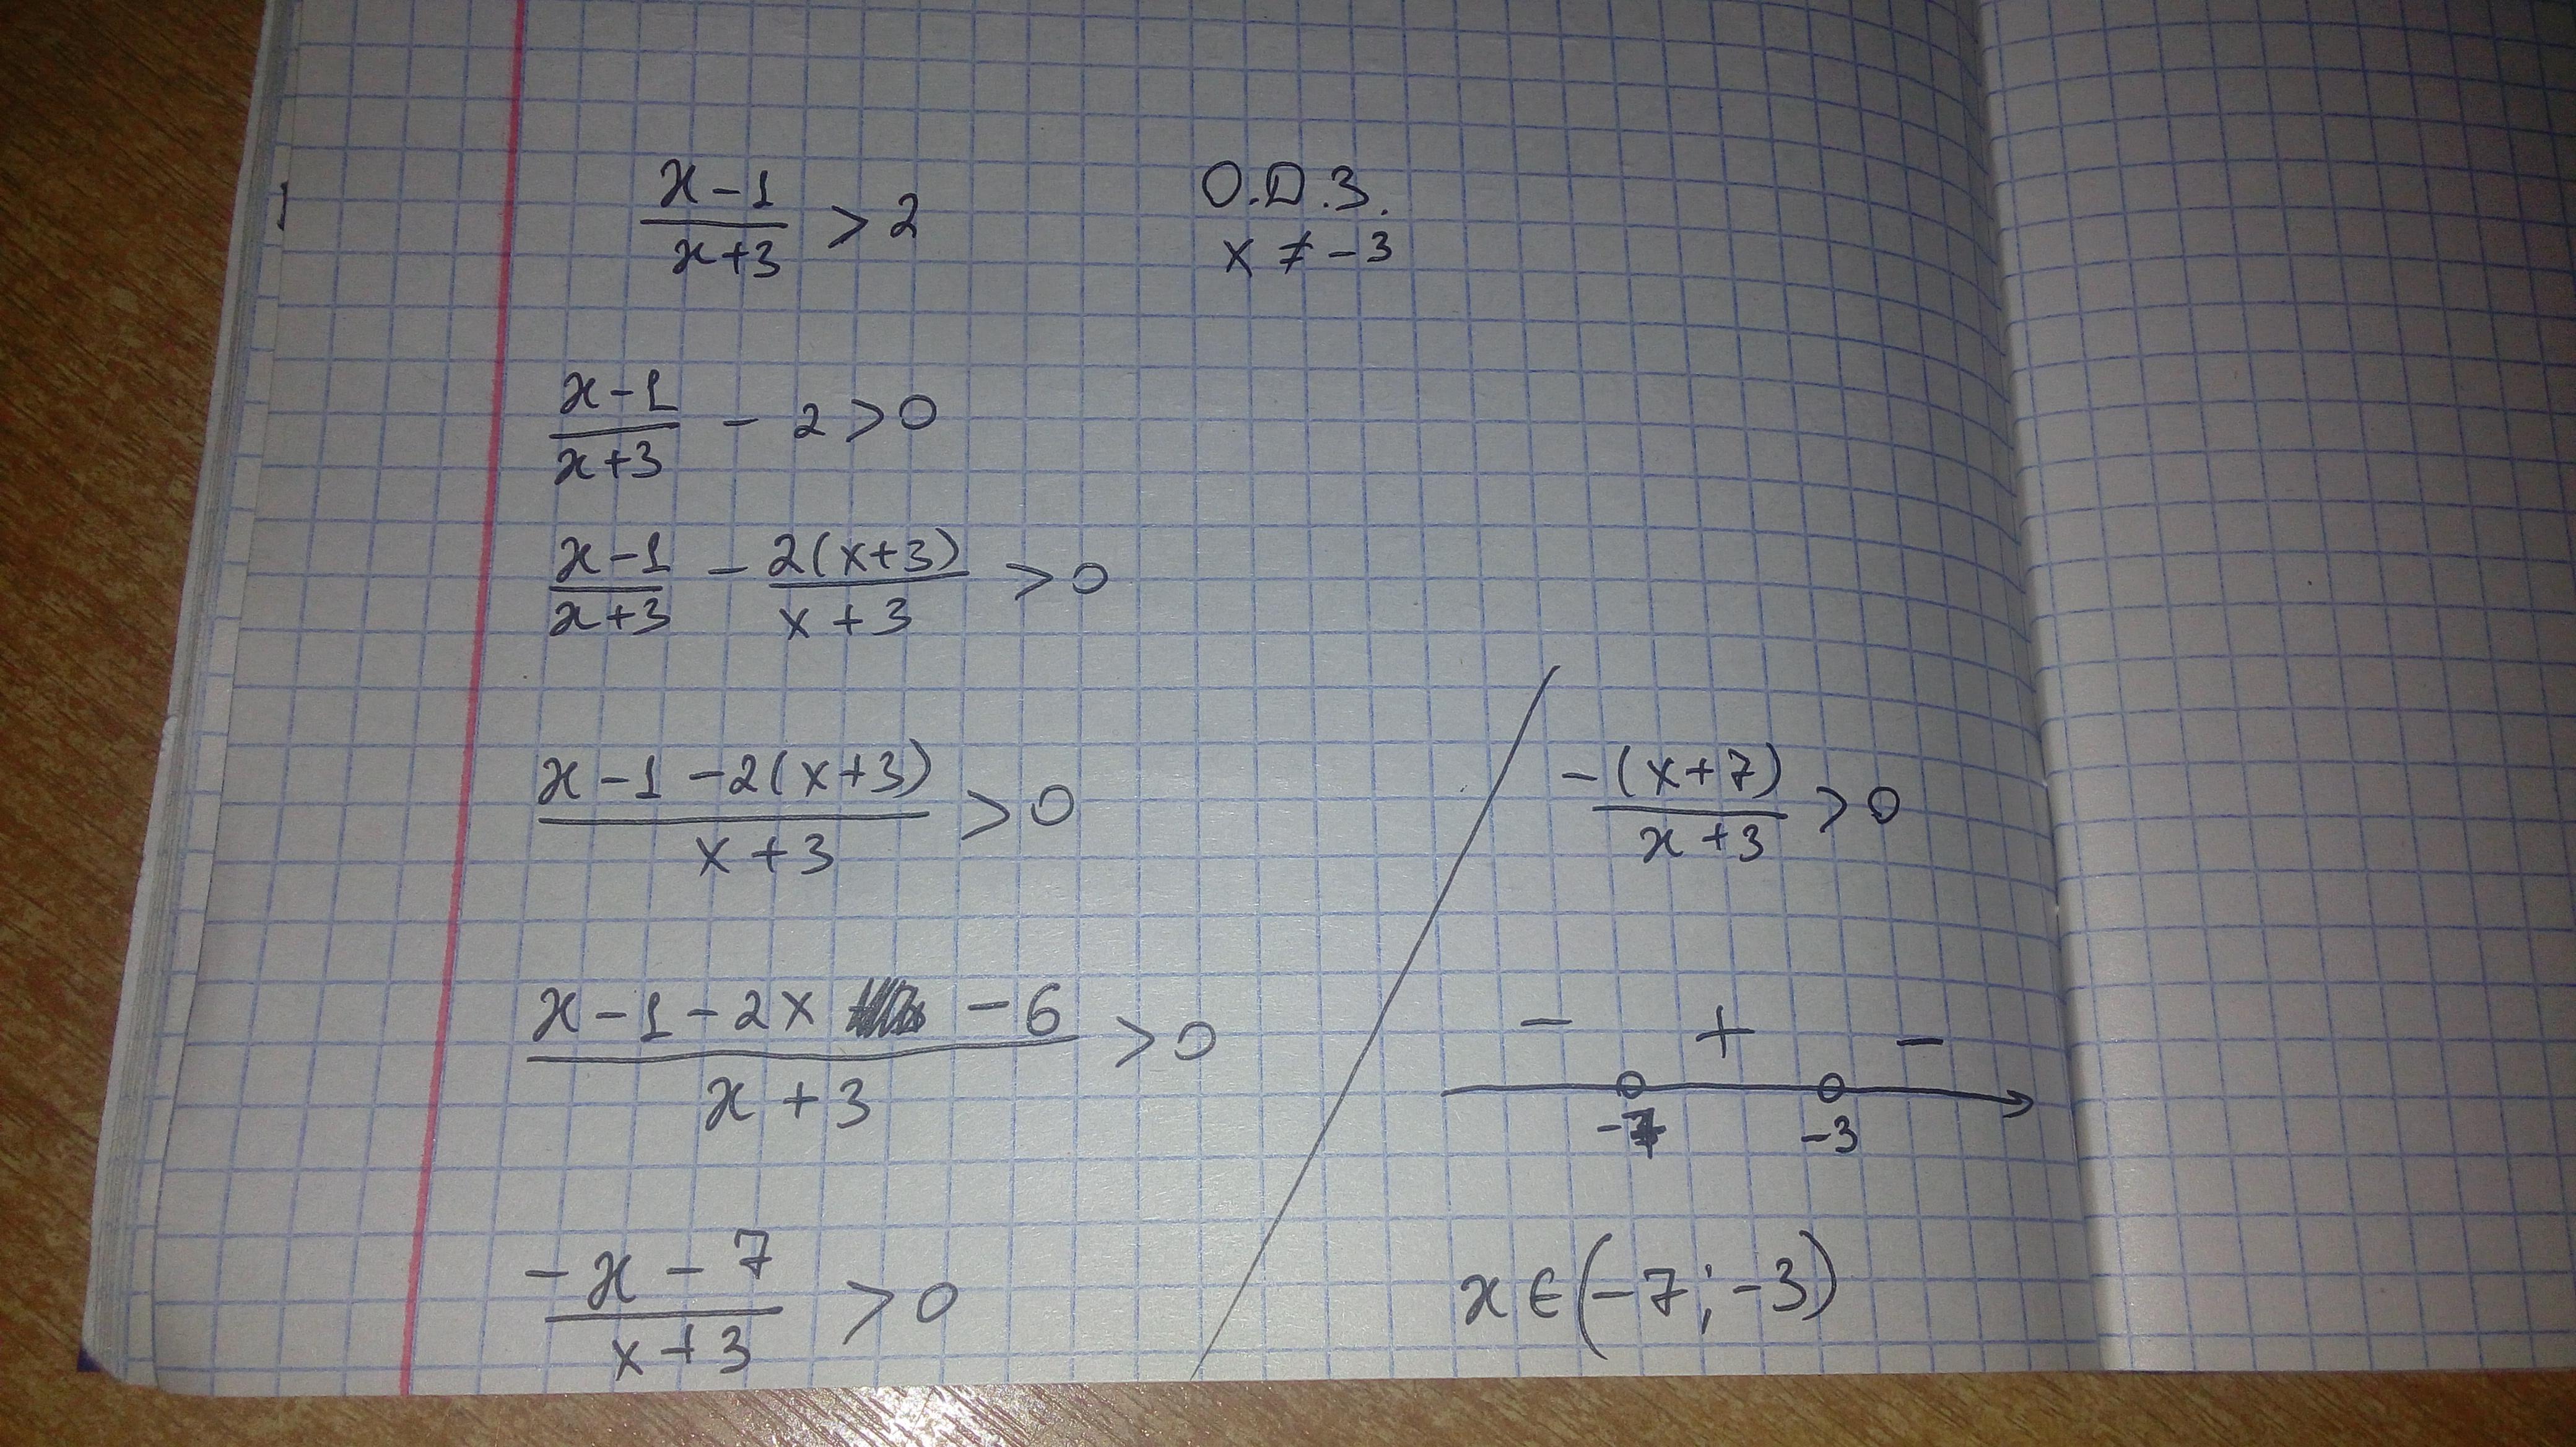 x-1/x+3 > 2
О.Д.З.
x ≠ -3
x-1/x+3 - 2 > 0
x-1/x+3 - 2(x+3)/x+3 > 0
x-1-2(x+3)/x+3 > 0
x-1-2x -6/x+3 > 0
-x-7/x+3 > 0
-(x+7)/x+3 > 0
- + -
-7 -3
x∈(-7;-3)